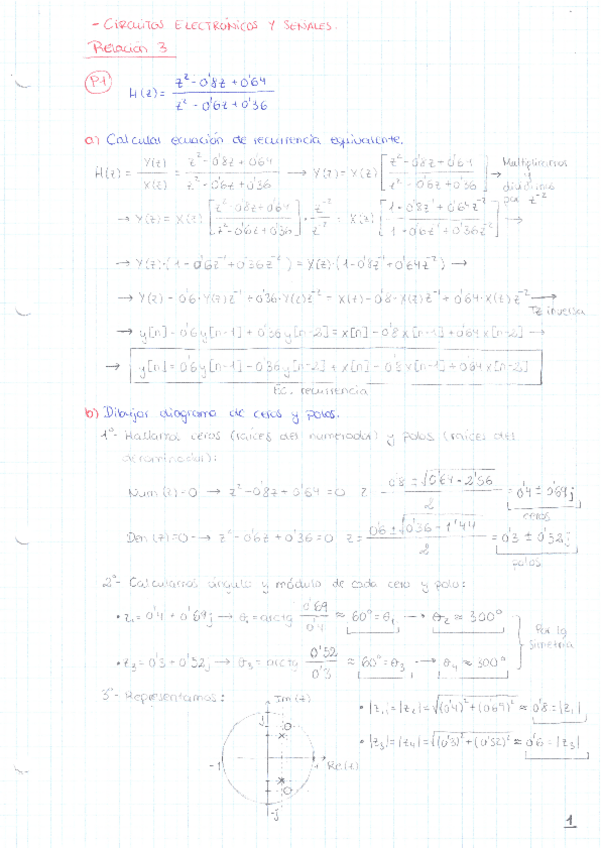 - CIRCUITOS ELECTRÓNICOS Y SEÑALES.
Relación 3
P1 H(z) = (z² - 0'8z + 0'64) / (z² - 0'6z + 0'36)
a) Calcular ecuación de recurrencia equivalente.
H(z) = Y(z)/X(z) = (z² - 0'8z + 0'64)/(z² - 0'6z + 0'36) → Y(z) = X(z) [(z² - 0'8z + 0'64)/(z² - 0'6z + 0'36)] → Multiplicamos y dividimos por z⁻²
→ Y(z) = X(z) [(z² - 0'8z + 0'64)/(z² - 0'6z + 0'36)] · z⁻²/z⁻² = X(z) [(1 - 0'8z⁻¹ + 0'64z⁻²)/(1 - 0'6z⁻¹ + 0'36z⁻²)] →
→ Y(z)·(1 - 0'6z⁻¹ + 0'36z⁻²) = X(z)·(1 - 0'8z⁻¹ + 0'64z⁻²) →
→ Y(z) - 0'6·Y(z)z⁻¹ + 0'36·Y(z)z⁻² = X(z) - 0'8·X(z)z⁻¹ + 0'64·X(z)z⁻² →
Tz inversa
→ y[n] - 0'6y[n-1] + 0'36y[n-2] = x[n] - 0'8x[n-1] + 0'64x[n-2] →
→ y[n] = 0'6y[n-1] - 0'36y[n-2] + x[n] - 0'8x[n-1] + 0'64x[n-2]
Ec. recurrencia
b) Dibujar diagrama de ceros y polos.
1º- Hallamos ceros (raíces del numerador) y polos (raíces del
denominador):
Num(z)=0 → z² - 0'8z + 0'64 = 0 z = (0'8 ± √(0'64 - 2'56))/2 = 0'4 ± 0'69j
ceros
Den(z)=0 → z² - 0'6z + 0'36 = 0 z = (0'6 ± √(0'36 - 1'44))/2 = 0'3 ± 0'52j
polos
2º- Calculamos ángulo y módulo de cada cero y polo:
• z₁ = 0'4 + 0'69j → θ₁ = arctg 0'69/0'4 ≈ 60° = θ₁ → θ₂ ≈ 300°
Por la simetría
• z₃ = 0'3 + 0'52j → θ₃ = arctg 0'52/0'3 ≈ 60° = θ₃ → θ₄ ≈ 300°
3º- Representamos:
Im(z)
• |z₁| = |z₂| = √((0'4)² + (0'69)²) ≈ 0'8 = |z₁|
• |z₃| = |z₄| = √((0'3)² + (0'52)²) ≈ 0'6 = |z₃|
j
-1
1
Re(z)
-j
1